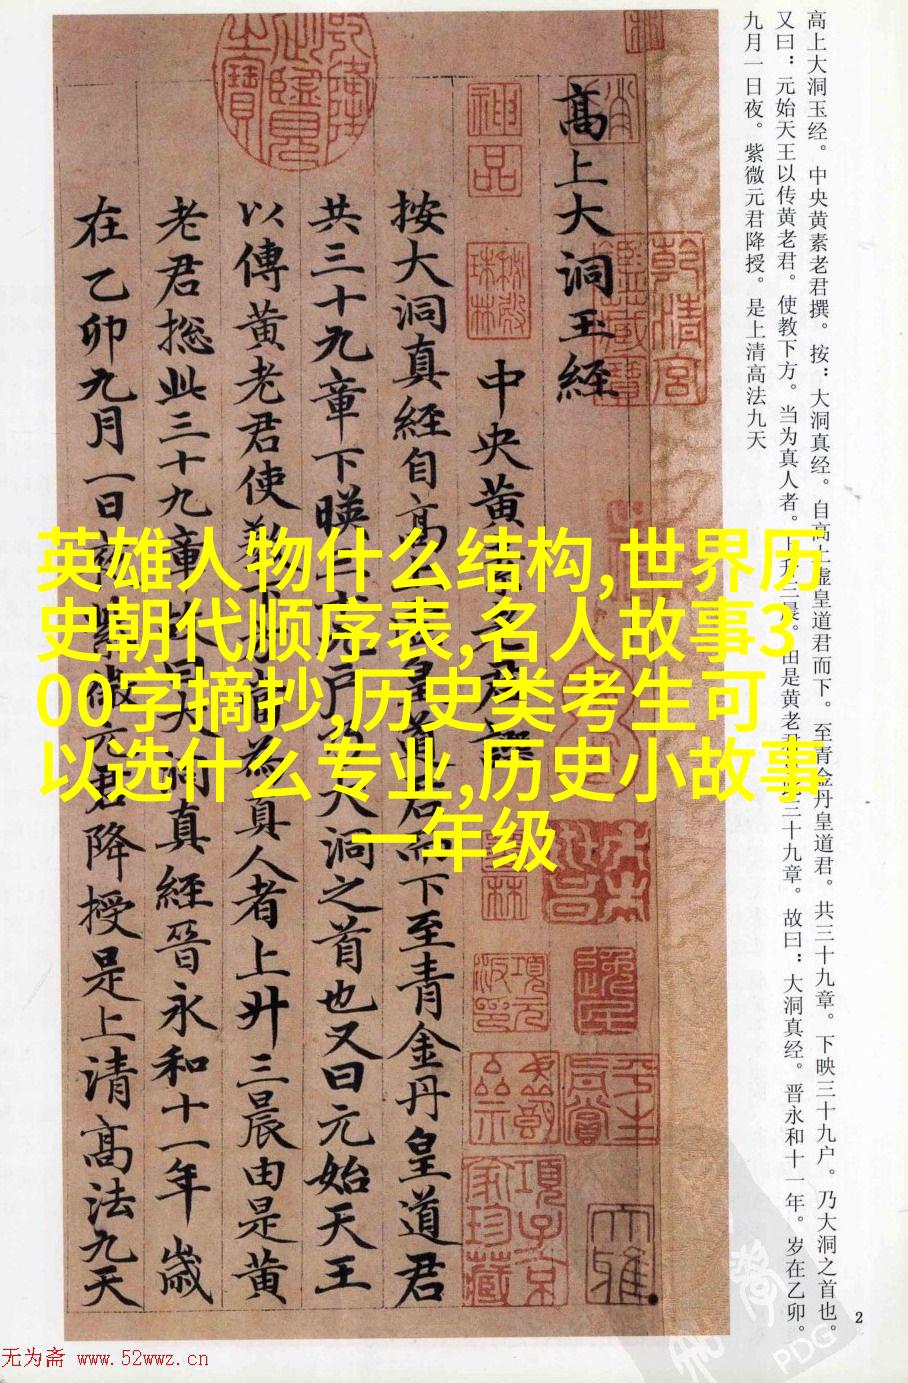 高上大洞玉经。中央黄素老君撰。按：大洞真经。自高上虚皇道君而下。至青金丹皇道君。共三十九章。下映三十九户。乃大洞之首也。
又曰：元始天王以传黄老君。使教下方。当为真人者。上升三晨。由是黄老君 三十九章。故曰：大洞真经。晋永和十一年。岁在乙卯。
九月一日夜。紫微元君降授。是上清高法九天
高上大洞玉經
中央黄
按大洞真經自高 皇道君而下至青金丹皇道君
共三十九章下暎三 户乃大洞之首也又曰元始天王
以傳黄老君使 為真人者上升三晨由是黄
老君捴此三十九章 大洞真經晉永和十一年歲
在乙卯九月一日 君降授是上清高法九天
神品
乾清宮鑑藏寶
英雄人物什么结构,世界历
史朝代顺序表,名人故事3
00字摘抄,历史类考生可
以选什么专业,历史小故事
一年级
2
PDG
无为斋 www.52wwz.cn